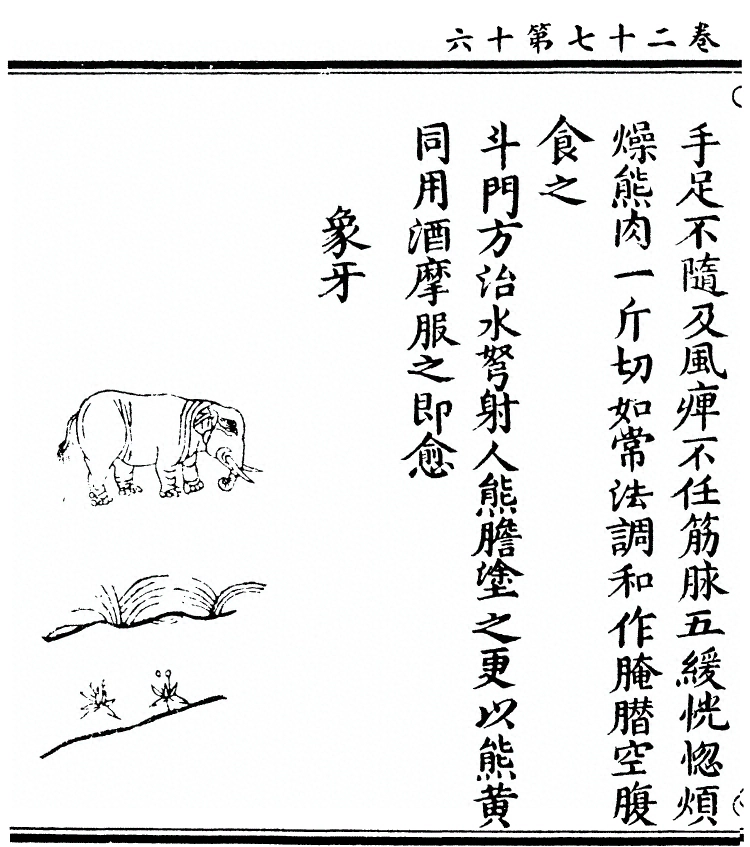 卷二十七第十六
手足不隨及風痺不任筋脉五緩恍惚煩
燥熊肉一斤切如常法調和作腌腊空腹
食之
斗門方治水弩射人熊膽塗之更以熊黄
同用酒摩服之即愈
象牙